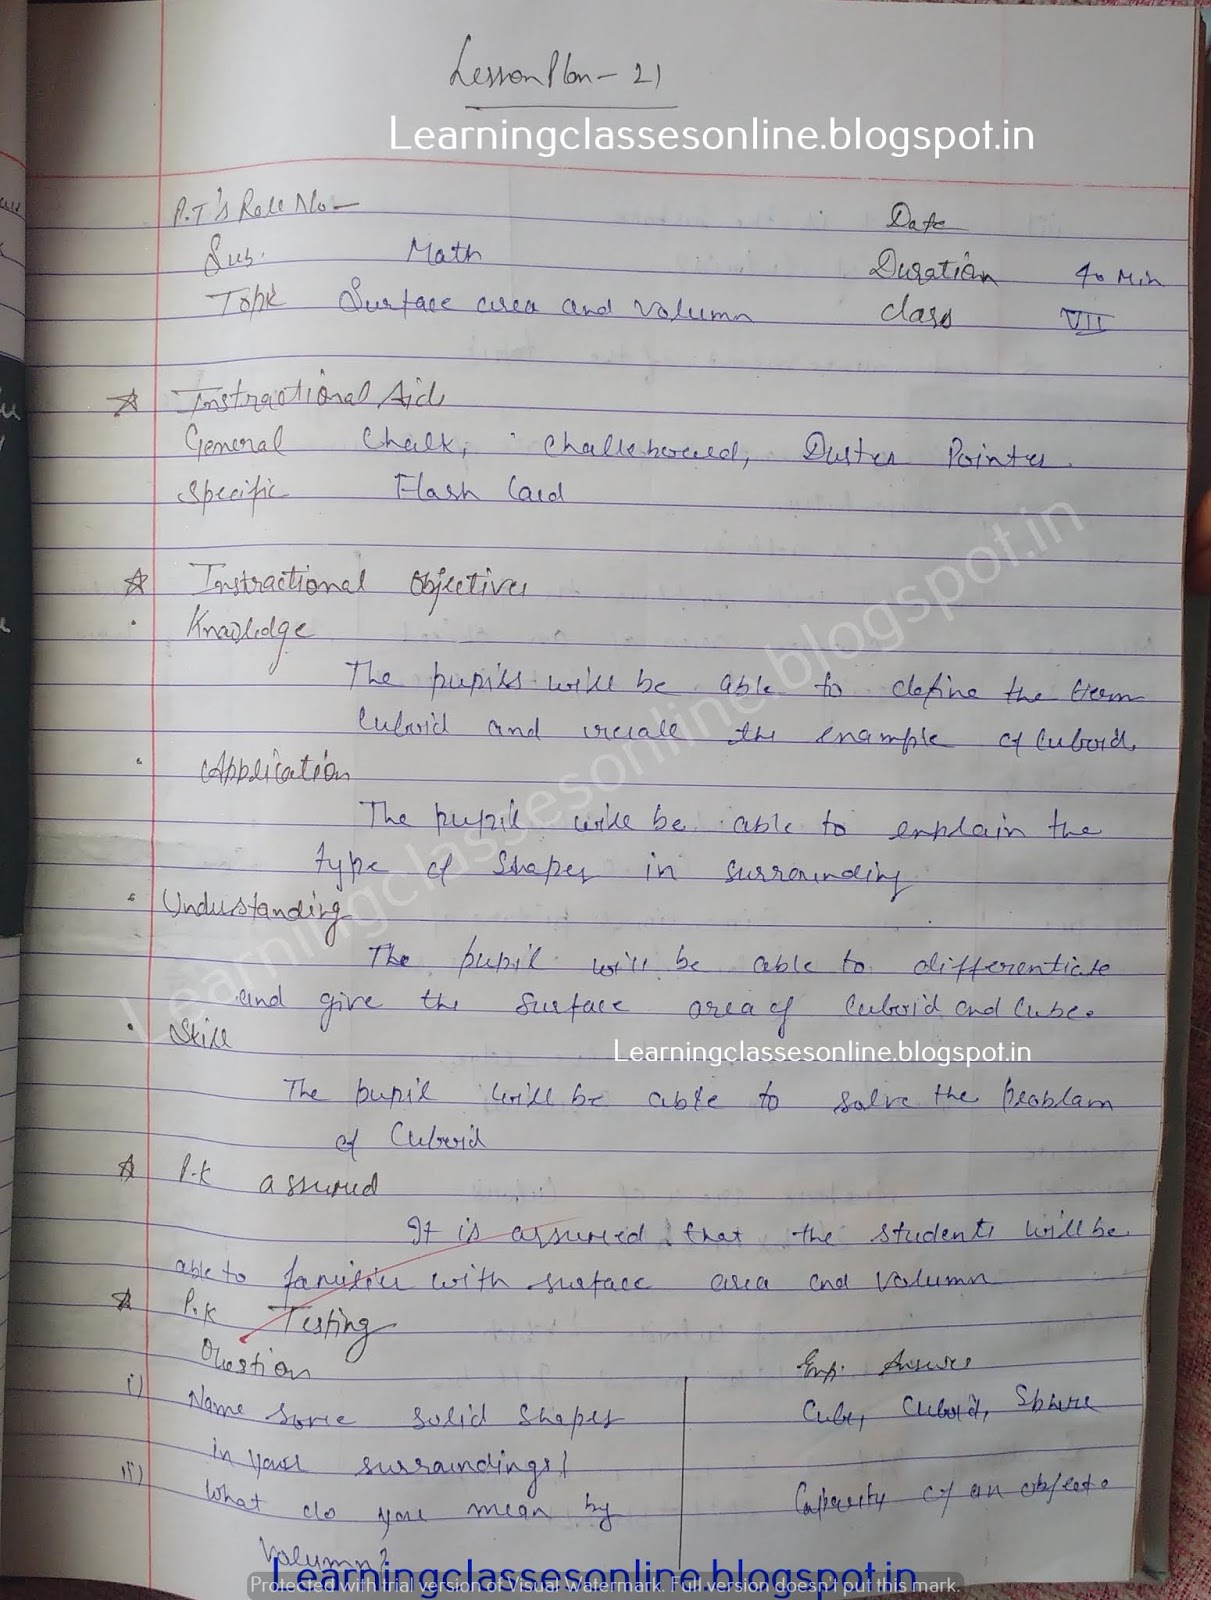 Lesson Plan - 21
Learningclassesonline.blogspot.in
P.T's Roll No -
Date
Sub. Math
Duration 40 Min
Topic Surface area and Volumn
class VII
Instractional Aids
General Chalk, Chalkboard, Duster Pointer.
Specific Flash Card
Instractional Objectives
Knowledge
The pupils will be able to define the term
Cuboid and recall the example of Cuboid.
Application
The pupil will be able to explain the
type of Shapes in surrounding
Understanding
The pupil will be able to differentiate
and give the surface area of Cuboid and Cube.
Skill
Learningclassesonline.blogspot.in
The pupil will be able to solve the problam
of Cuboid
P.K assumed
It is assumed that the students will be
able to familier with surface area and Volumn
P.K Testing
Question
Exp. Answer
i) Name some solid shapes
Cube, Cuboid, Sphere
in your surroundings?
ii) What do you mean by
Capacity of an object.
Volumn?
Learningclassesonline.blogspot.in
Protected with trial version of Visual Watermark. Full version doesn't put this mark.
Learningclassesonline.blogspot.in